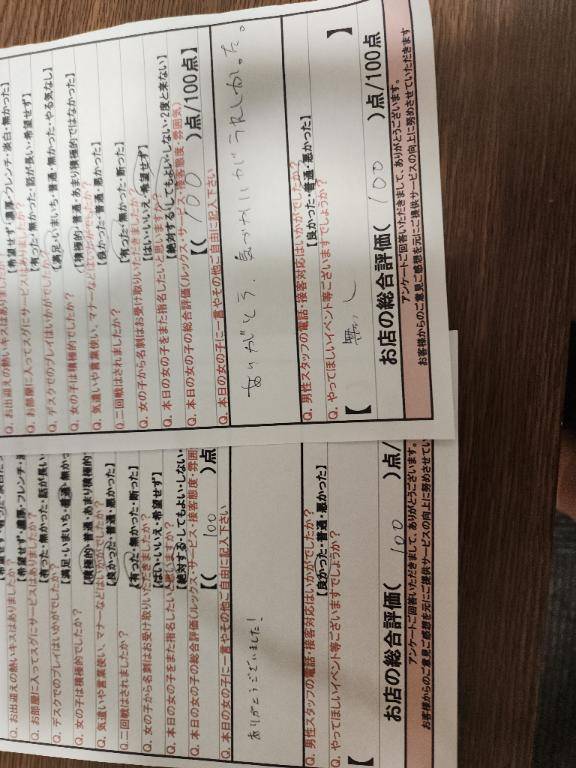 Q. お出迎えの熱いキスはありましたか?
【希望せず・濃厚・フレンチ・淡白・無かった】
Q. お部屋に入ってスグにサービスはありましたか?
【有った・無かった・話が長い・希望せず】
Q. デスクでのプレイはいかがでしたか?
【満足・いまいち・普通・無かった・やる気なし】
Q. 女の子は積極的でしたか?
【積極的・普通・あまり積極的ではなかった】
Q. 気遣いや言葉使い、マナーなどはいかがでしたか?
【良かった・普通・悪かった】
Q. 二回戦はされましたか?
【有った・無かった・断った】
Q. 女の子から名刺はお受け取りいただきましたか?
【はい・いいえ・希望せず】
Q. 本日の女の子をまた指名したいと思いますか?
【絶対する・してもよい・しない・2度と来ない】
Q. 本日の女の子の総合評価(ルックス・サービス・接客態度・雰囲気)
【( 100 )点/100点】
Q. 本日の女の子に一言やその他ご自由に記入下さい
ありがとう。気づかいがうれしかった。
Q. 男性スタッフの電話・接客対応はいかがでしたか?
【良かった・普通・悪かった】
Q. やってほしいイベント等ございますでしょうか?
【 無し 】
お店の総合評価( 100 )点/100点
アンケートご回答いただきまして、ありがとうございます。
お客様からのご意見ご感想を元にご提供サービスの向上に努めさせていただきます
Q. お出迎えの熱いキスはありましたか?
Q. お部屋に入ってスグにサービスはありましたか?
【有った・無かった・話が長い
Q. デスクでのプレイはいかがでしたか?
【満足・いまいち・普通・無かっ
Q. 女の子は積極的でしたか?
【積極的・普通・あまり積極的
Q. 気遣いや言葉使い、マナーなどはいかがでしたか?
【良かった・普通・悪かった】
Q. 二回戦はされましたか?
【有った・無かった・断った】
Q. 女の子から名刺はお受け取りいただきましたか?
【はい・いいえ・希望せず】
Q. 本日の女の子をまた指名したいと思いますか?
【絶対する・してもよい・しない・
Q. 本日の女の子の総合評価(ルックス・サービス・接客態度・雰囲
【( 100 )点
Q. 本日の女の子に一言やその他ご自由に記入下さい
ありがとうございました!
Q. 男性スタッフの電話・接客対応はいかがでしたか?
【良かった・普通・悪かった】
Q. やってほしいイベント等ございますでしょうか?
【
お店の総合評価( 100 )点/
アンケートご回答いただきまして、ありがとうございます。
お客様からのご意見ご感想を元にご提供サービスの向上に努めさせてい